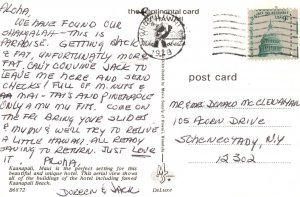 Aloha,
WE HAVE FOUND OUR
SHANGALAH — THIS IS
PARADISE. GETTING BACK
IS FAT, UNFORTUNATELY MORE
FAT. CAN'T CONVINCE JACK TO
LEAVE ME HERE AND SEND
CHECKS! FULL OF M. NUTS &
MAI-TAI — THIS AND PINEAPPLE
ONLY A MU MU FITS. COME ON
THE FRI BRING YOUR SLIDES
& MUMU & WE'LL TRY TO RELIVE
A LITTLE HAWAII, ALL READY
SAVING TO RETURN. JUST LOVE
IT. ALOHA,
DOREEN & JACK
Kaanapali, Maui is the perfect setting for this
beautiful and unique hotel. This aerial view shows
all of the buildings of the hotel including famed
Kaanapali Beach.
B6972
DeLuxe
post card
MR & MRS DONALD MCCLENAHAN
105 ACORN DRIVE
SCHENECTADY, N.Y.
12302